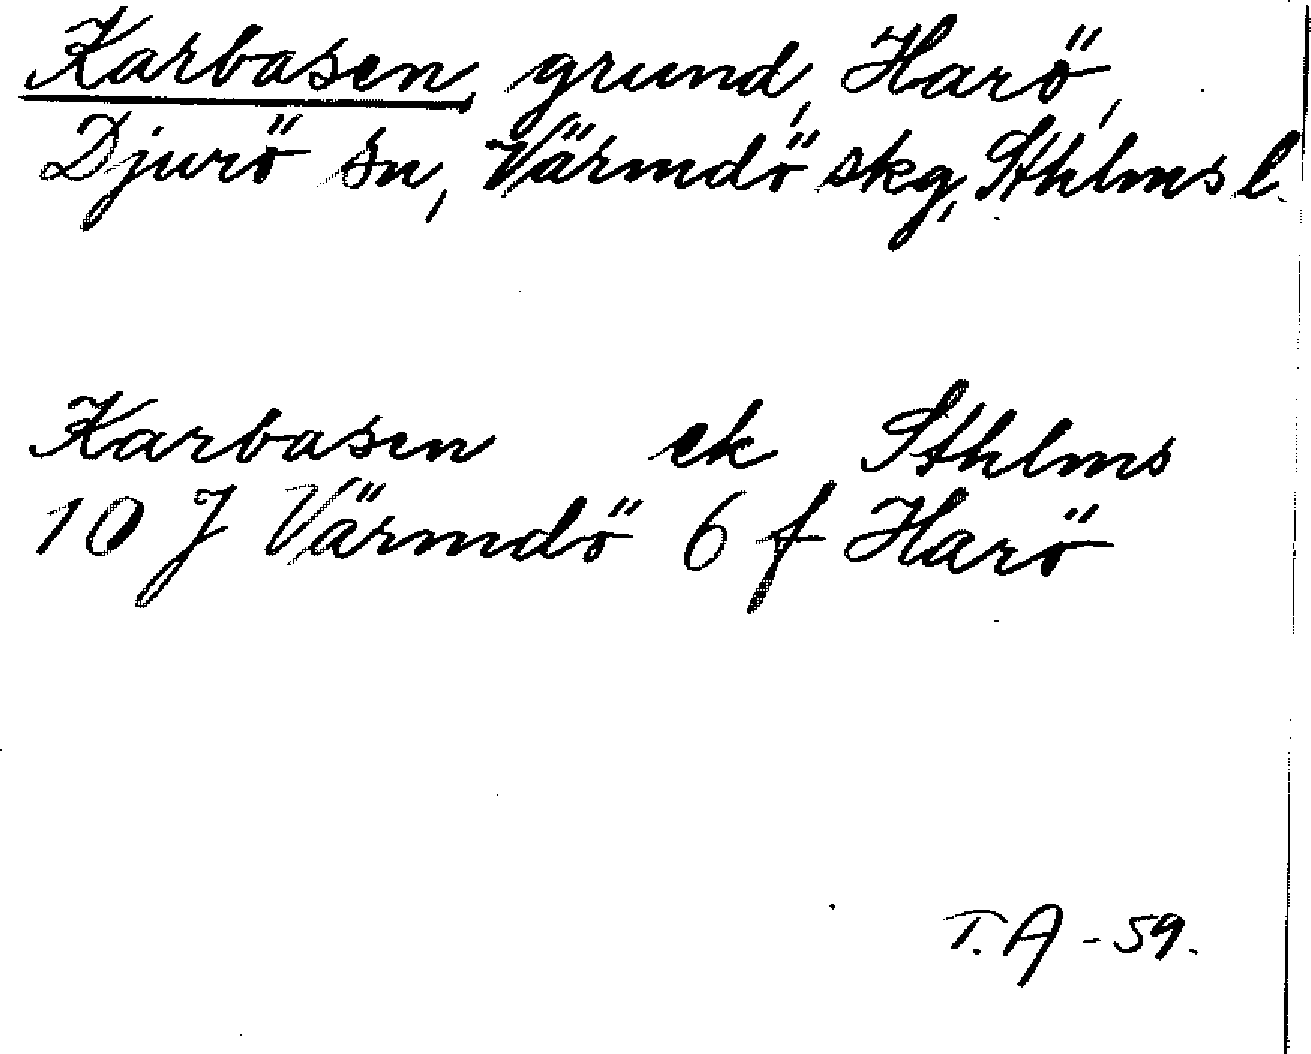 Karbasen, grund, Harö,
Djurö sn, Värmdö skg, Sthlms l.
Karbasen ek Sthlms
10 J Värmdö 6 f Harö
T. A - 59.